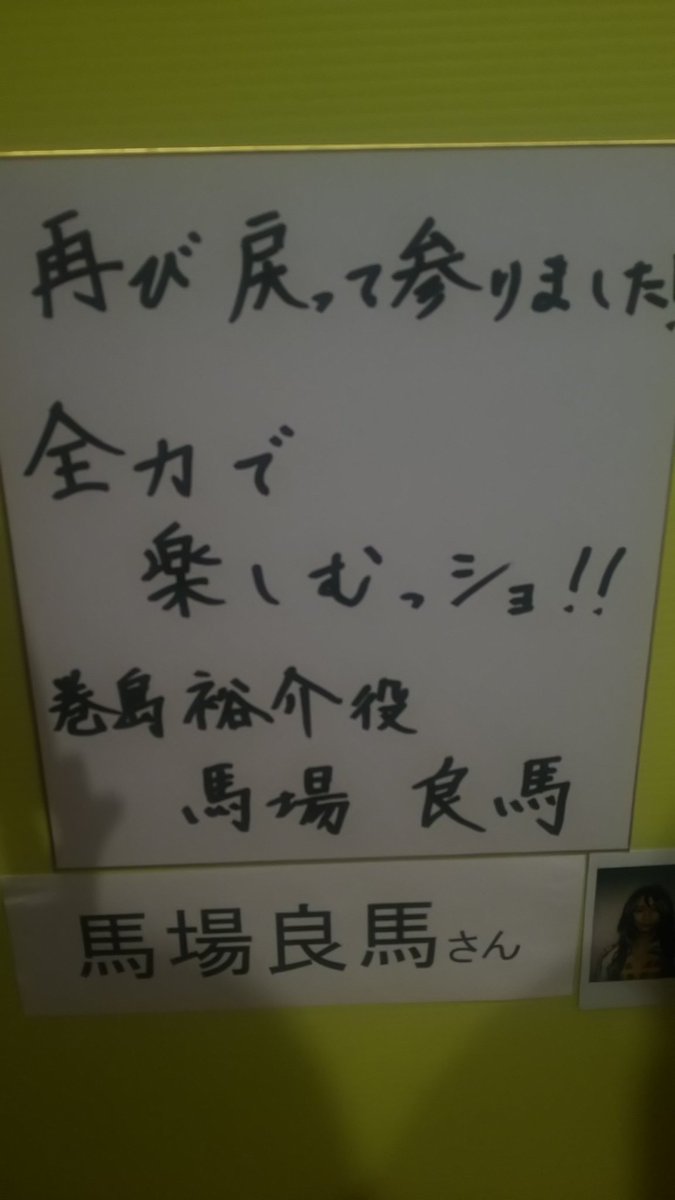 再び戻って参りました!
全力で
楽しむっショ!!
巻島裕介役
馬場 良馬
馬場良馬さん